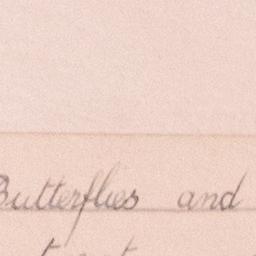 Butterflies and